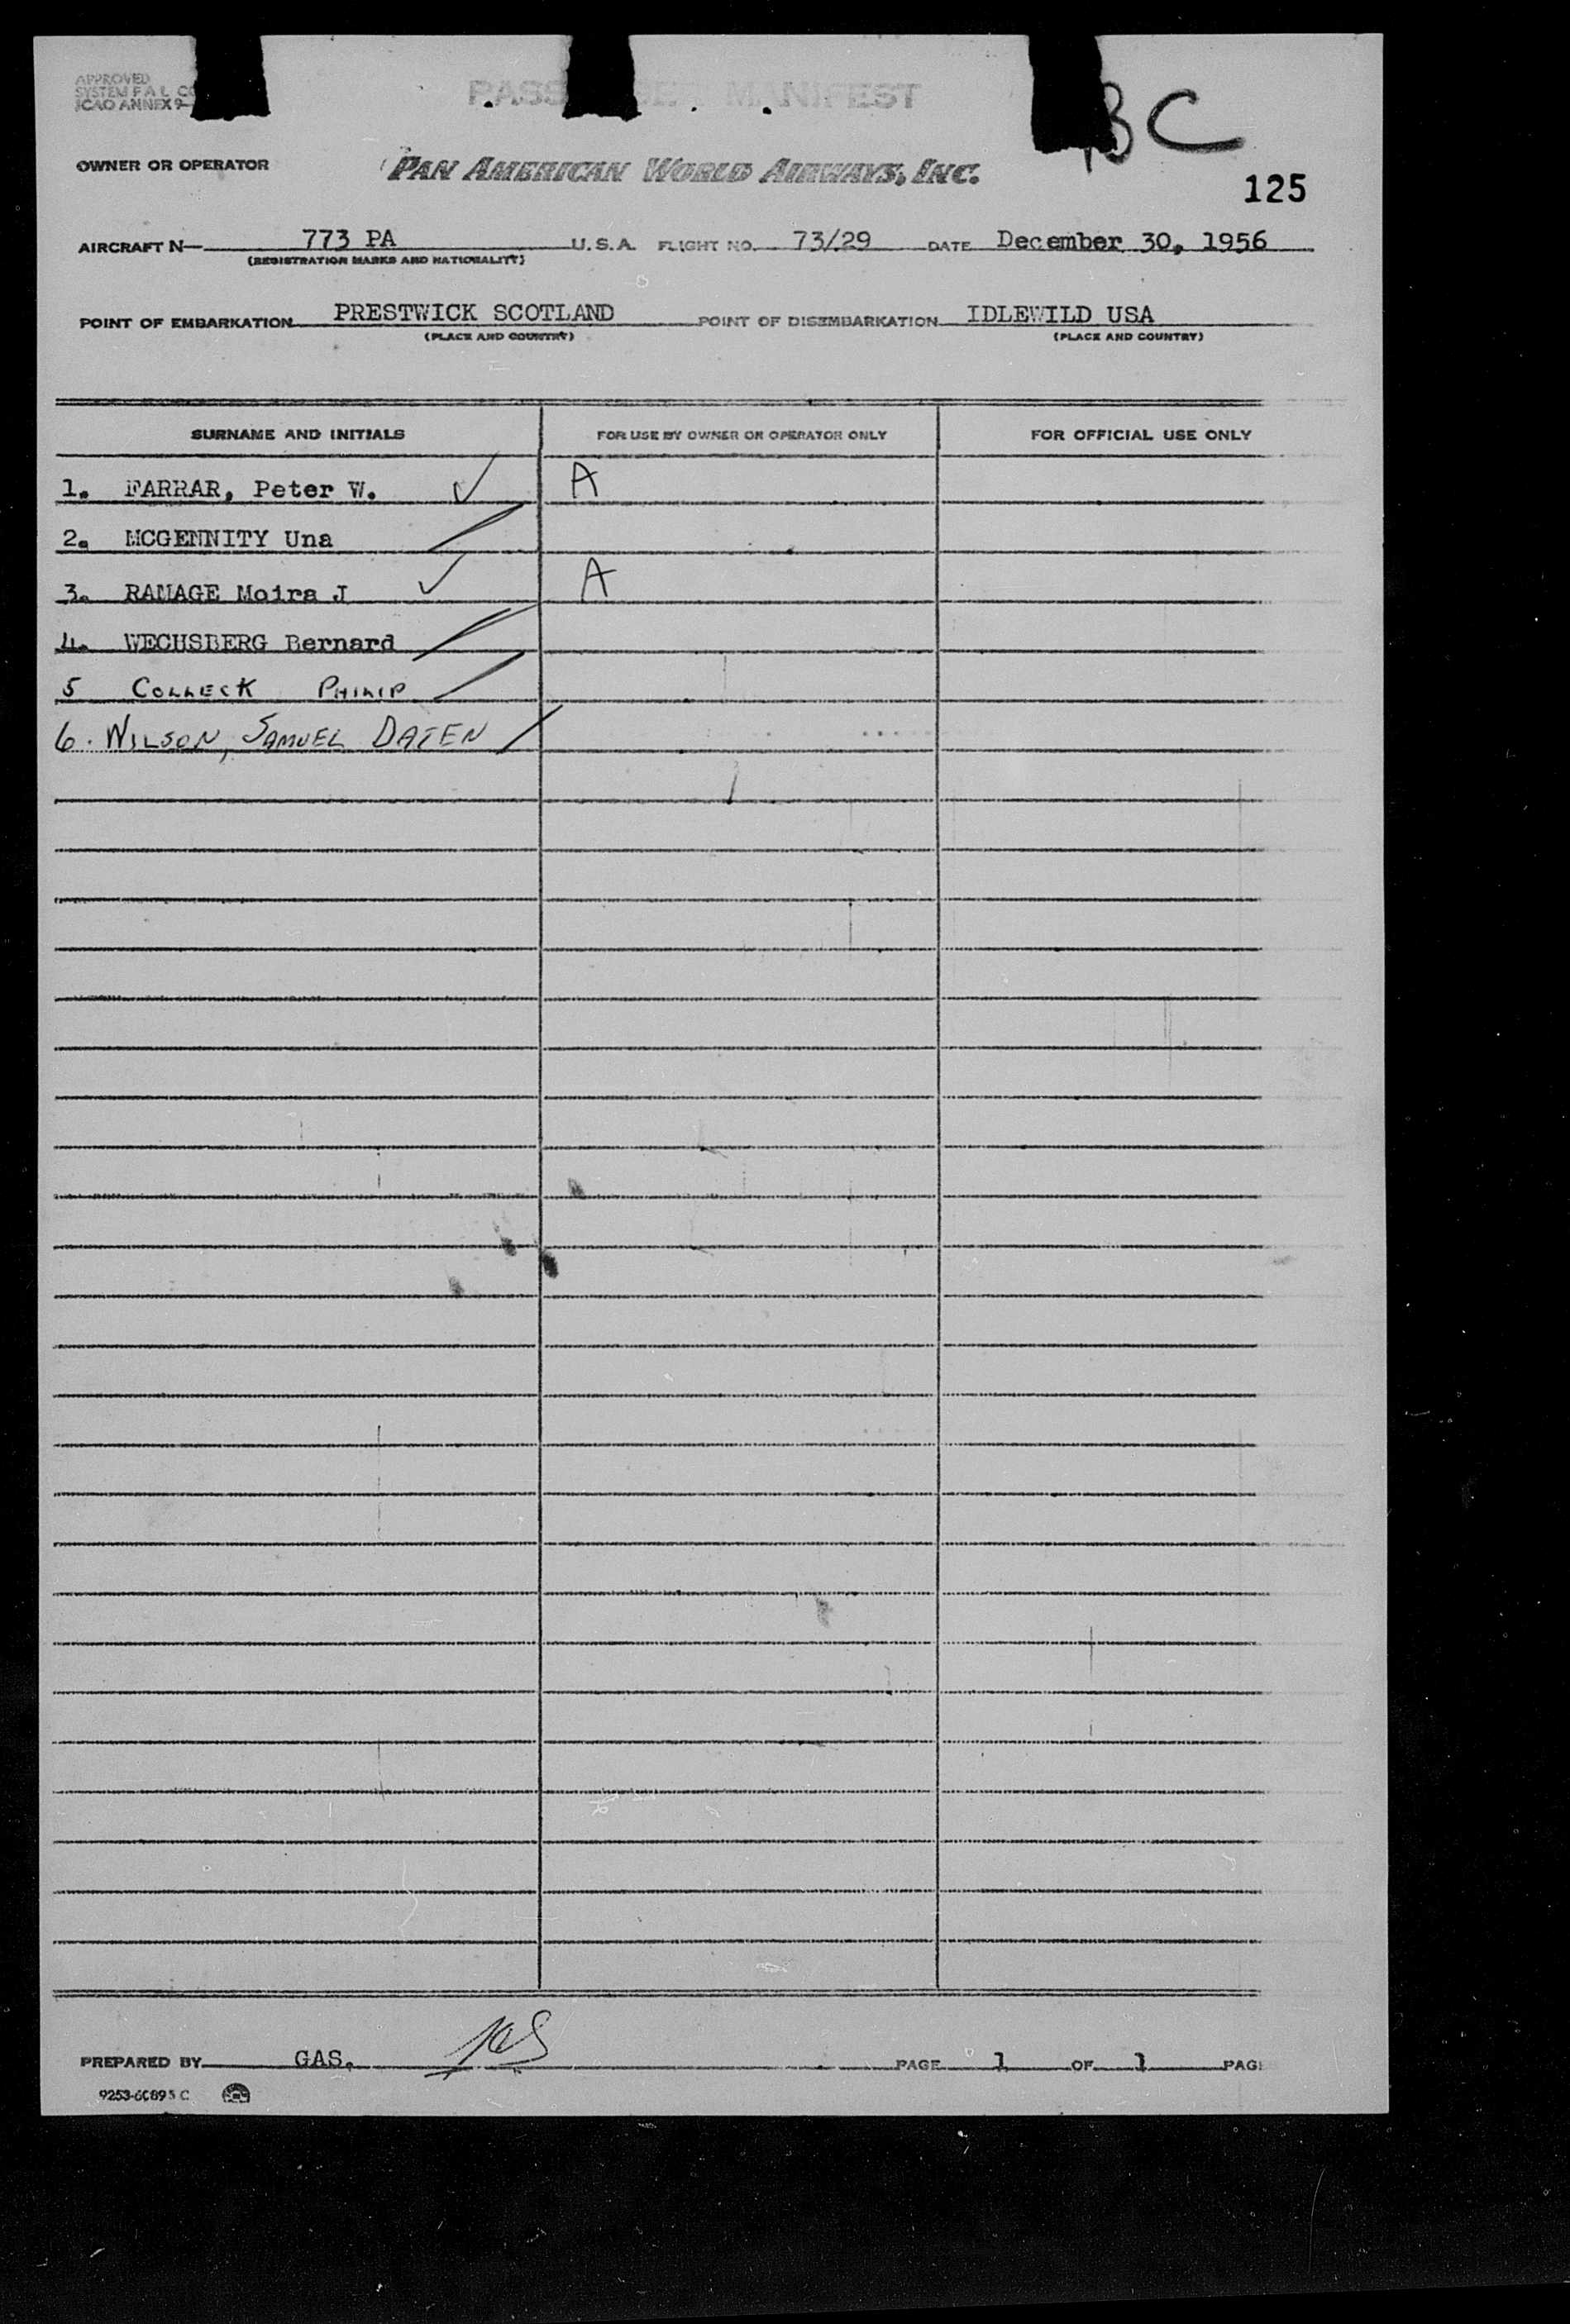 APPROVED
SYSTEM F A L CO
ICAO ANNEX 9
MANIFEST
BC
OWNER OR OPERATOR PAN AMERICAN WORLD AIRWAYS, INC.
125
AIRCRAFT N— 773 PA U.S.A. FLIGHT NO. 73/29 DATE December 30, 1956
(REGISTRATION MARKS AND NATIONALITY)
POINT OF EMBARKATION PRESTWICK SCOTLAND POINT OF DISEMBARKATION IDLEWILD USA
(PLACE AND COUNTRY) (PLACE AND COUNTRY)
SURNAME AND INITIALS FOR USE BY OWNER OR OPERATOR ONLY FOR OFFICIAL USE ONLY
1. FARRAR, Peter W. ✓ A
2. MCGENNITY Una
3. RAMAGE Moira J ✓ A
4. WECHSBERG Bernard
5 COLLECK PHILIP
6. WILSON, SAMUEL DATEN
PREPARED BY GAS. PAGE 1 OF 1 PAG